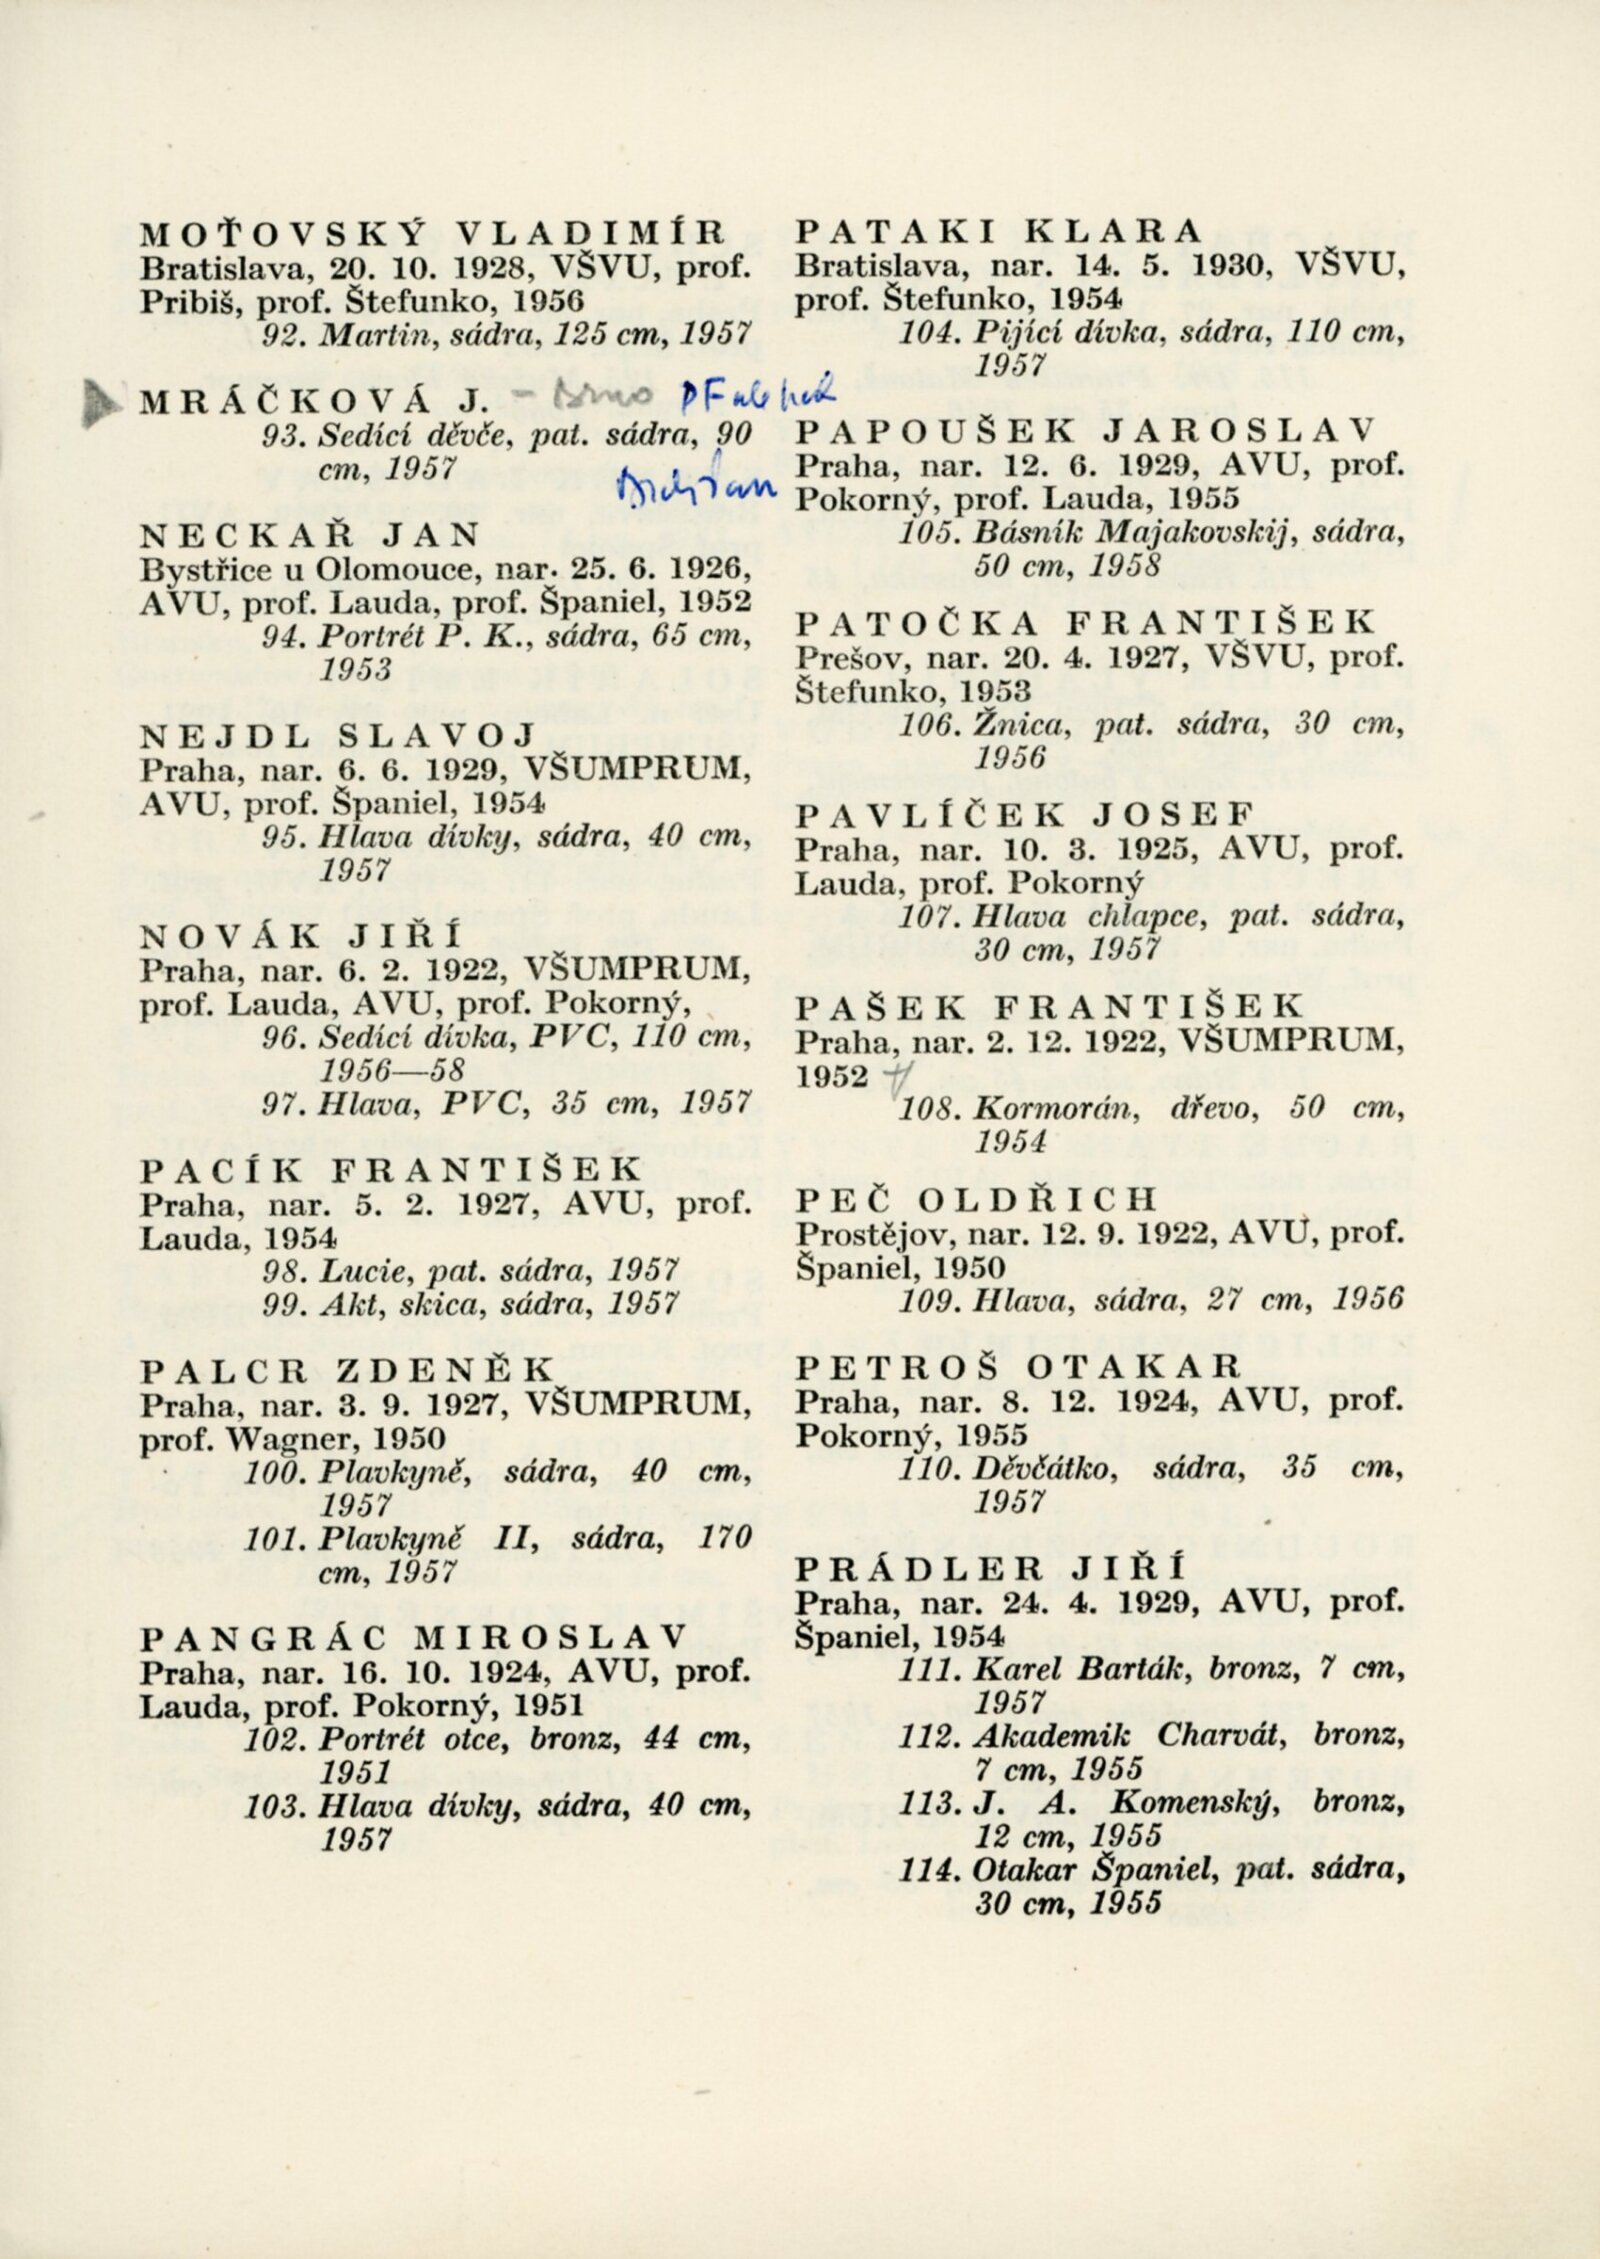 MOŤOVSKÝ VLADIMÍR
Bratislava, 20. 10. 1928, VŠVU, prof.
Pribiš, prof. Štefunko, 1956
92. Martin, sádra, 125 cm, 1957
MRÁČKOVÁ J. – Brno
93. Sedící děvče, pat. sádra, 90
cm, 1957
NECKAŘ JAN
Bystřice u Olomouce, nar. 25. 6. 1926,
AVU, prof. Lauda, prof. Španiel, 1952
94. Portrét P. K., sádra, 65 cm,
1953
NEJDL SLAVOJ
Praha, nar. 6. 6. 1929, VŠUMPRUM,
AVU, prof. Španiel, 1954
95. Hlava dívky, sádra, 40 cm,
1957
NOVÁK JIŘÍ
Praha, nar. 6. 2. 1922, VŠUMPRUM,
prof. Lauda, AVU, prof. Pokorný,
96. Sedící dívka, PVC, 110 cm,
1956—58
97. Hlava, PVC, 35 cm, 1957
PACÍK FRANTIŠEK
Praha, nar. 5. 2. 1927, AVU, prof.
Lauda, 1954
98. Lucie, pat. sádra, 1957
99. Akt, skica, sádra, 1957
PALCR ZDENĚK
Praha, nar. 3. 9. 1927, VŠUMPRUM,
prof. Wagner, 1950
100. Plavkyně, sádra, 40 cm,
1957
101. Plavkyně II, sádra, 170
cm, 1957
PANGRÁC MIROSLAV
Praha, nar. 16. 10. 1924, AVU, prof.
Lauda, prof. Pokorný, 1951
102. Portrét otce, bronz, 44 cm,
1951
103. Hlava dívky, sádra, 40 cm,
1957
PATAKI KLARA
Bratislava, nar. 14. 5. 1930, VŠVU,
prof. Štefunko, 1954
104. Pijící dívka, sádra, 110 cm,
1957
PAPOUŠEK JAROSLAV
Praha, nar. 12. 6. 1929, AVU, prof.
Pokorný, prof. Lauda, 1955
105. Básník Majakovskij, sádra,
50 cm, 1958
PATOČKA FRANTIŠEK
Prešov, nar. 20. 4. 1927, VŠVU, prof.
Štefunko, 1953
106. Žnica, pat. sádra, 30 cm,
1956
PAVLÍČEK JOSEF
Praha, nar. 10. 3. 1925, AVU, prof.
Lauda, prof. Pokorný
107. Hlava chlapce, pat. sádra,
30 cm, 1957
PAŠEK FRANTIŠEK
Praha, nar. 2. 12. 1922, VŠUMPRUM,
1952
108. Kormorán, dřevo, 50 cm,
1954
PEČ OLDŘICH
Prostějov, nar. 12. 9. 1922, AVU, prof.
Španiel, 1950
109. Hlava, sádra, 27 cm, 1956
PETROŠ OTAKAR
Praha, nar. 8. 12. 1924, AVU, prof.
Pokorný, 1955
110. Děvčátko, sádra, 35 cm,
1957
PRÁDLER JIŘÍ
Praha, nar. 24. 4. 1929, AVU, prof.
Španiel, 1954
111. Karel Barták, bronz, 7 cm,
1957
112. Akademik Charvát, bronz,
7 cm, 1955
113. J. A. Komenský, bronz,
12 cm, 1955
114. Otakar Španiel, pat. sádra,
30 cm, 1955